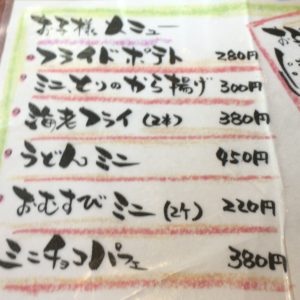 お子様メニュー
フライドポテト 280円
ミニとりのから揚げ 300円
海老フライ(2本) 380円
うどんミニ 450円
おむすびミニ(2ケ) 220円
ミニチョコパフェ 380円